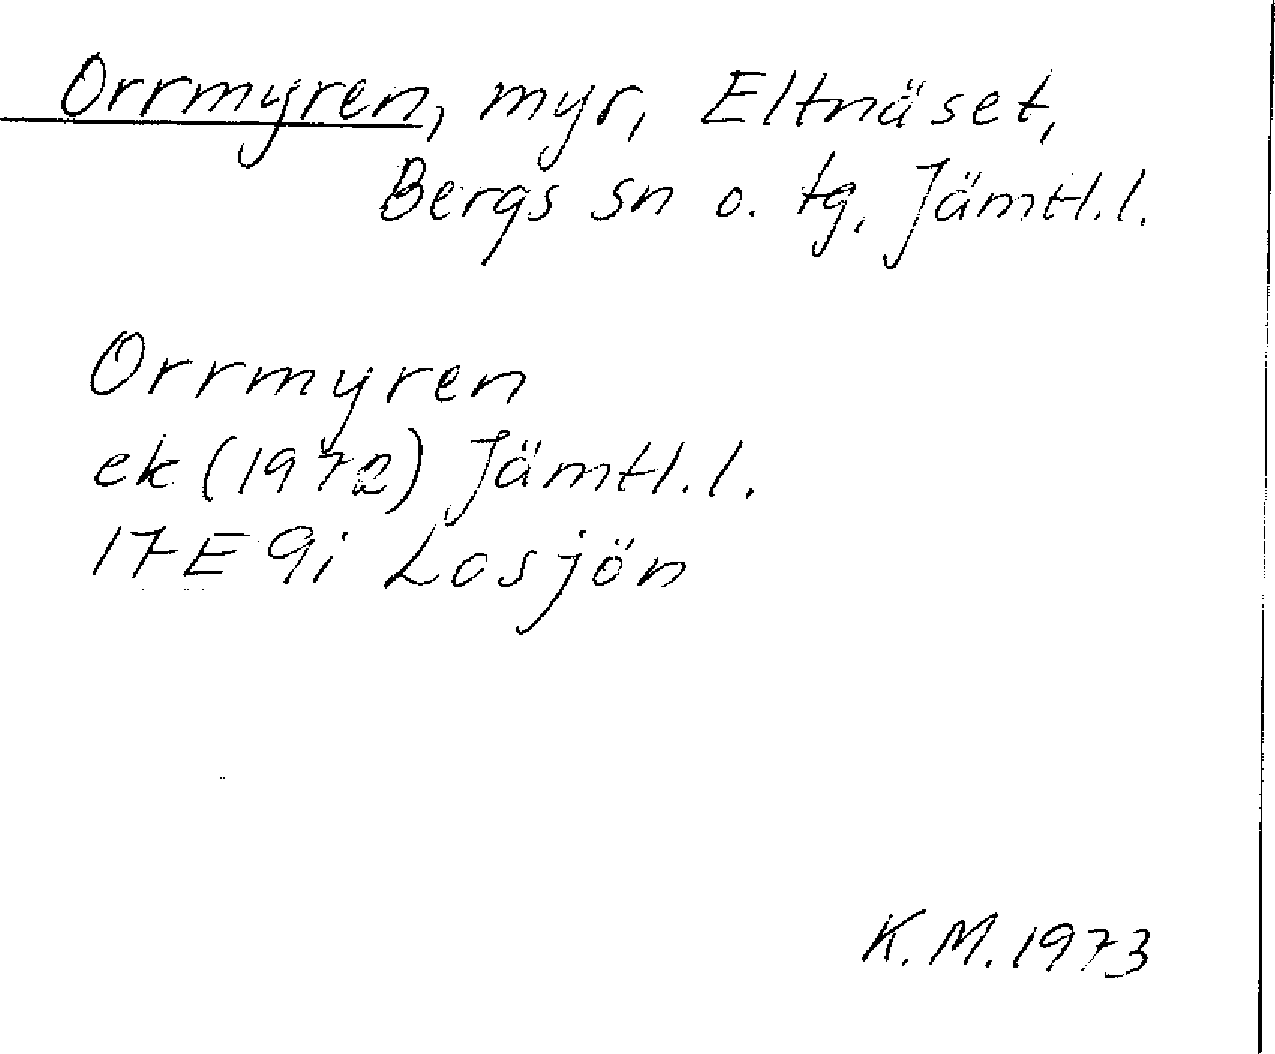 Orrmyren, myr, Eltnäset,
Bergs sn o. tg, Jämtl.l.
Orrmyren
ek (1972) Jämtl.l.
17E 9i Losjön
K.M. 1973